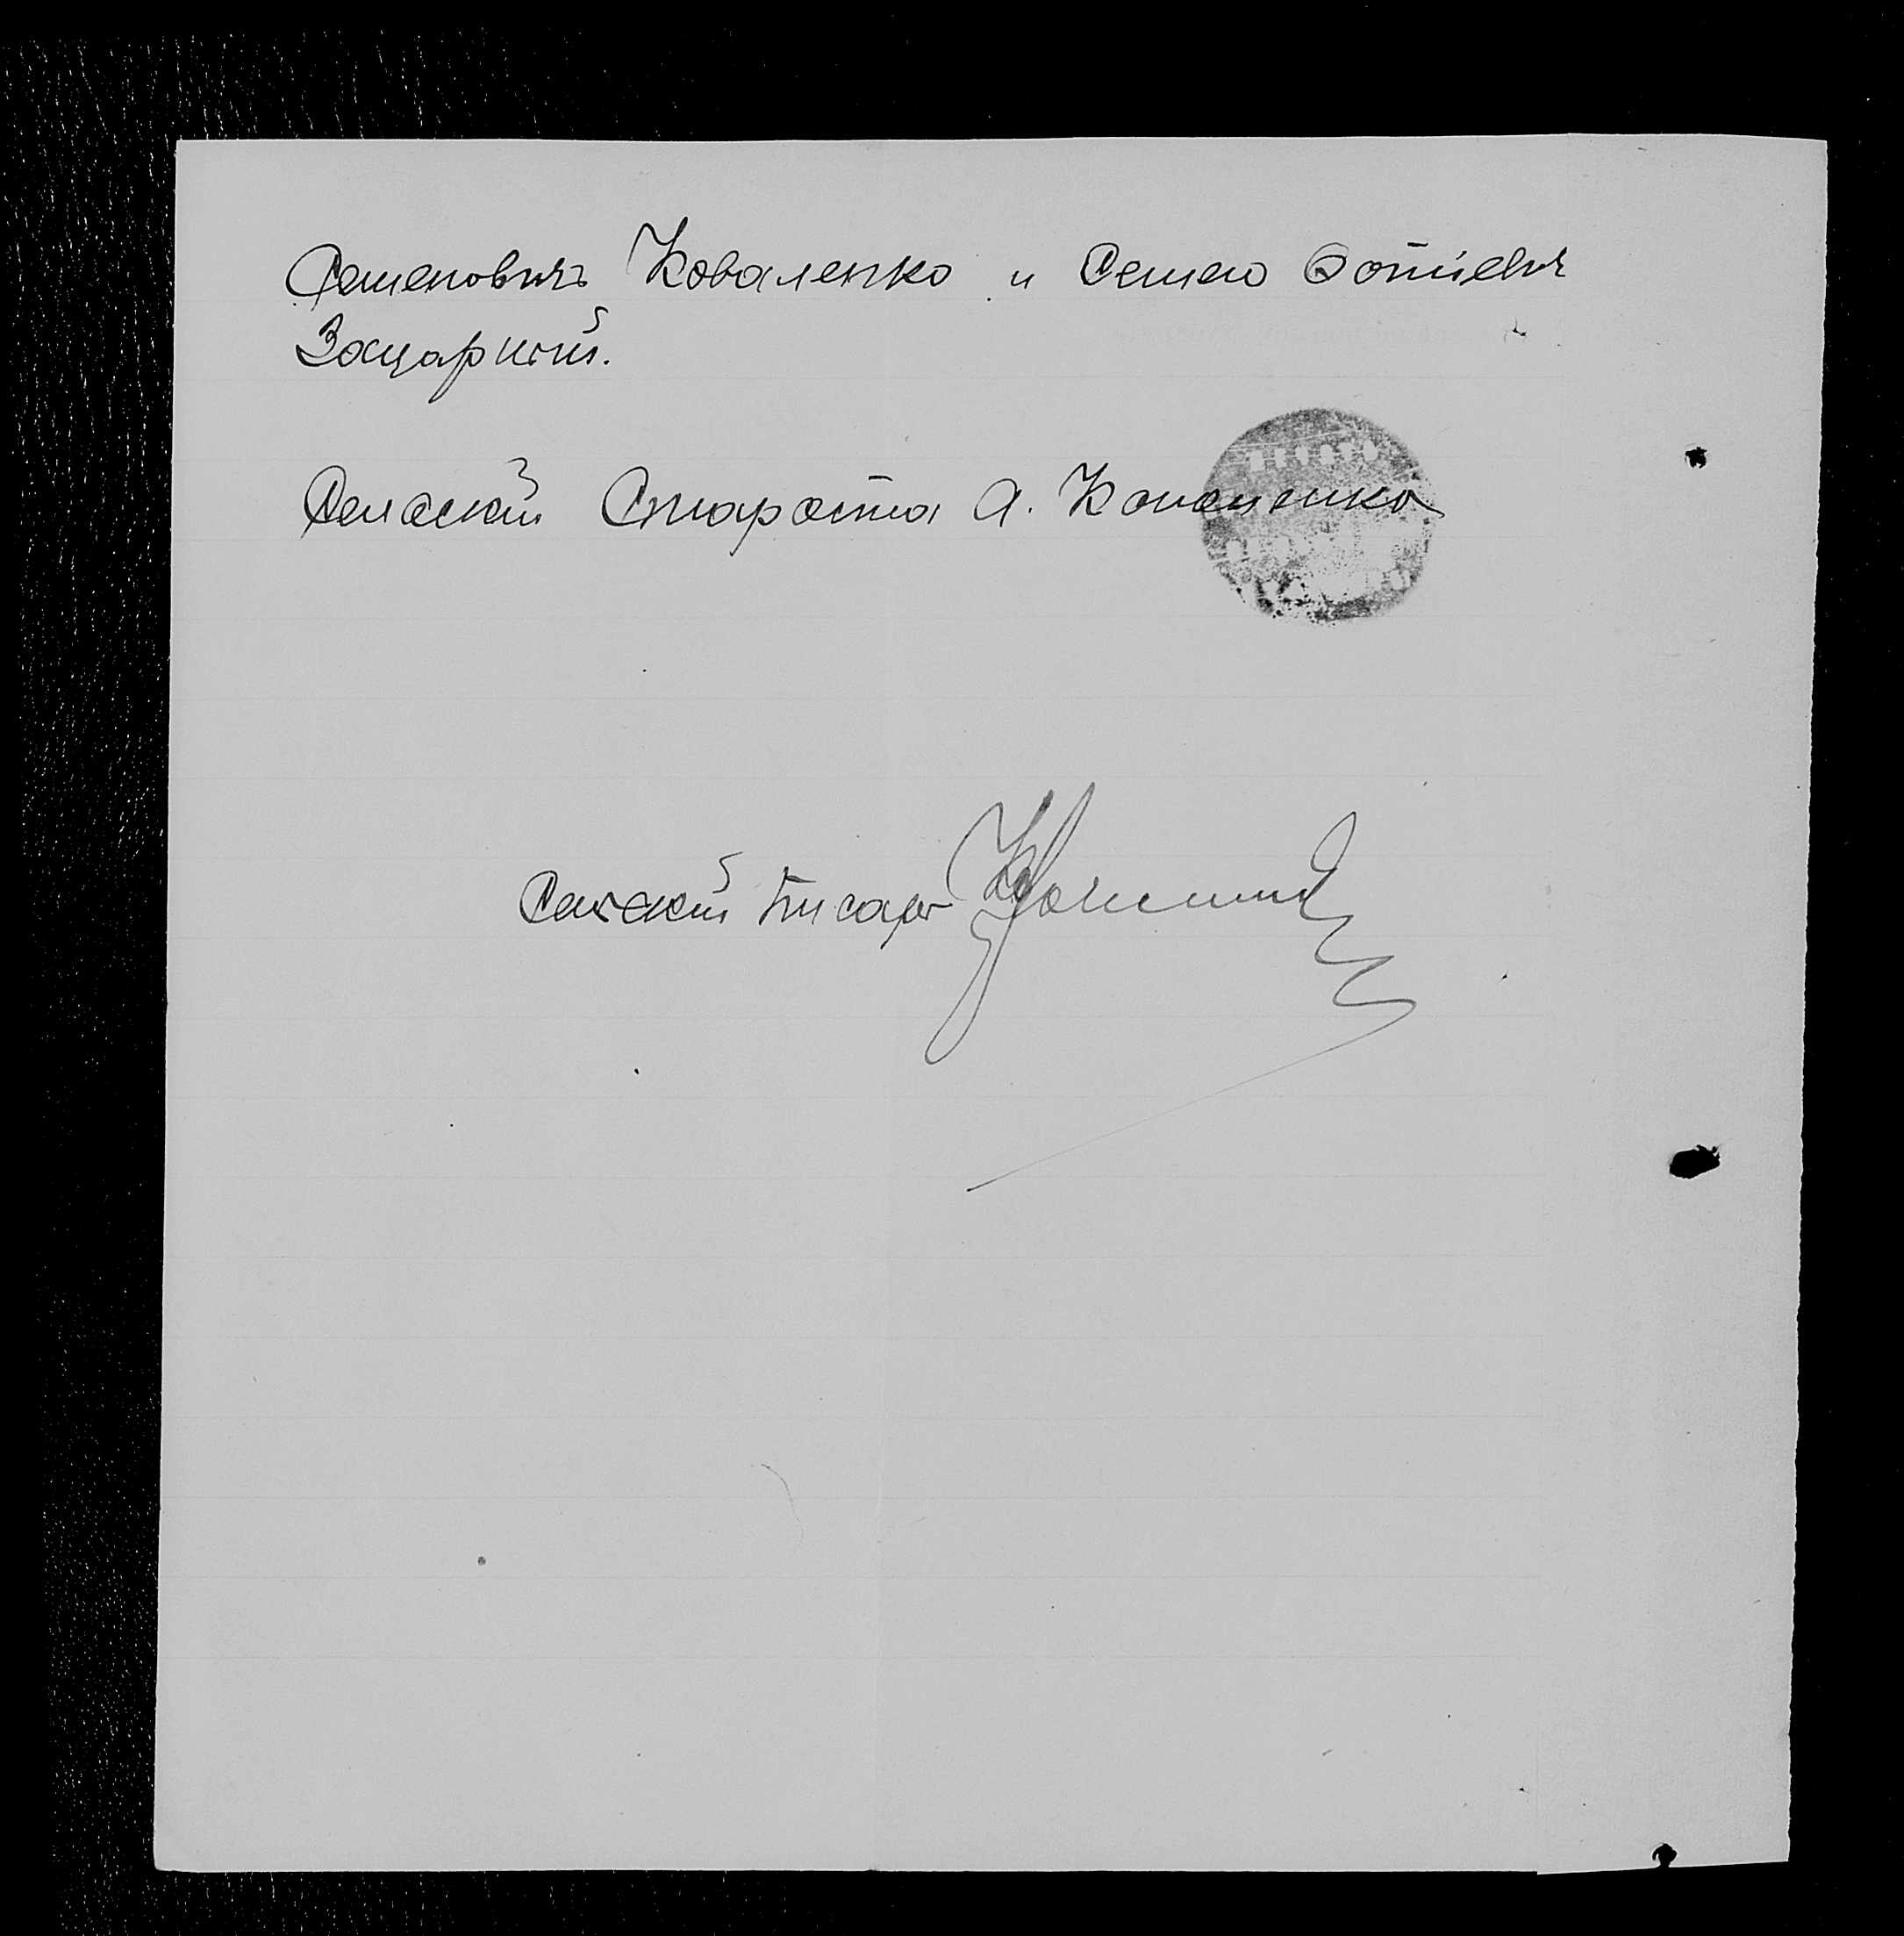 Семеновичъ Коваленко и Семен Фотиевич
Зацаркий.
Сельский Староста А. Кононенко
Сельский Писарь